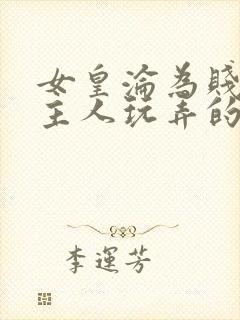 女皇淪為賤
主人玩弄的
李運芳